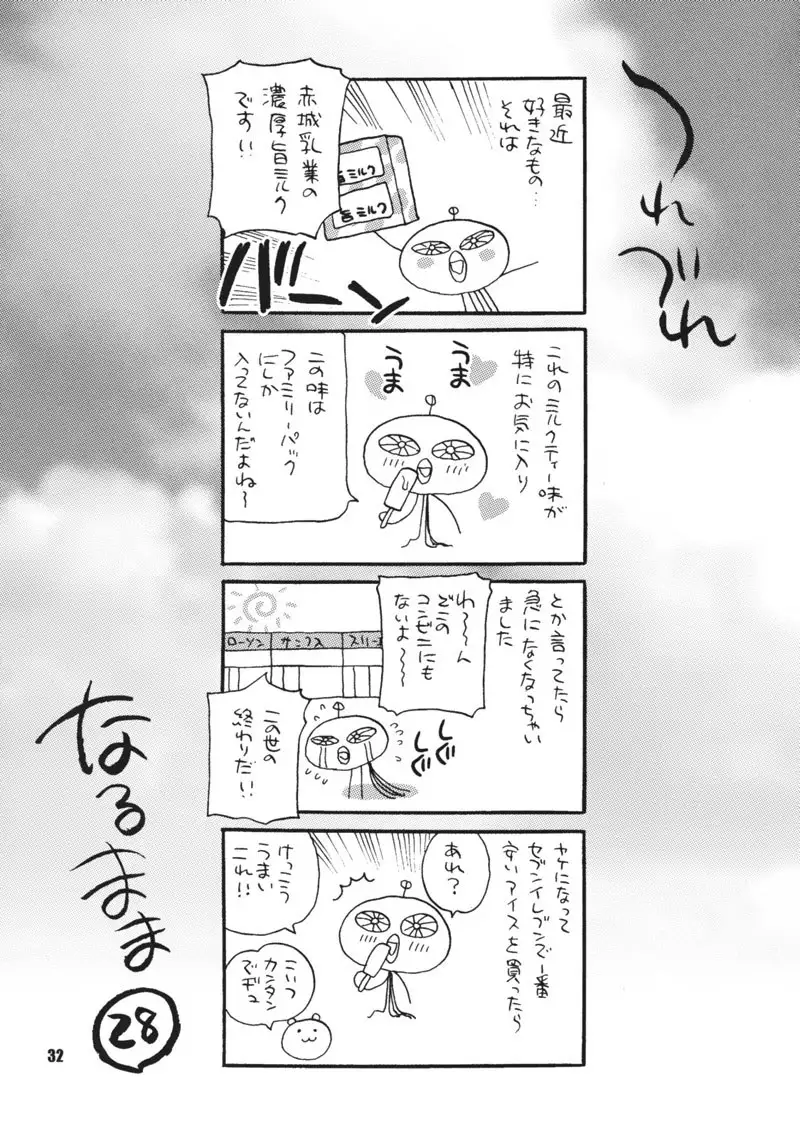 つれづれ
なるまま
28
最近
好きなもの…
それは
赤城乳業の
濃厚旨ミルク
です!!
旨ミルク
旨ミルク
バーン
これのミルクティー味が
特にお気に入り
うま
うま
この味は
ファミリーパック
にしか
入ってないんだよね〜
とか言ってたら
急になくなっちゃい
ました
わ〜〜ん
どこの
コンビニにも
ないよ〜〜
ローソン
サンクス
スリー
ぐし
ぐし
この世の
終わりだい!!
ヤケになって
セブンイレブンで一番
安いアイスを買ったら
あれ?
けっこう
うまい
これ!!
こいつ
カンタン
でヂュ
32